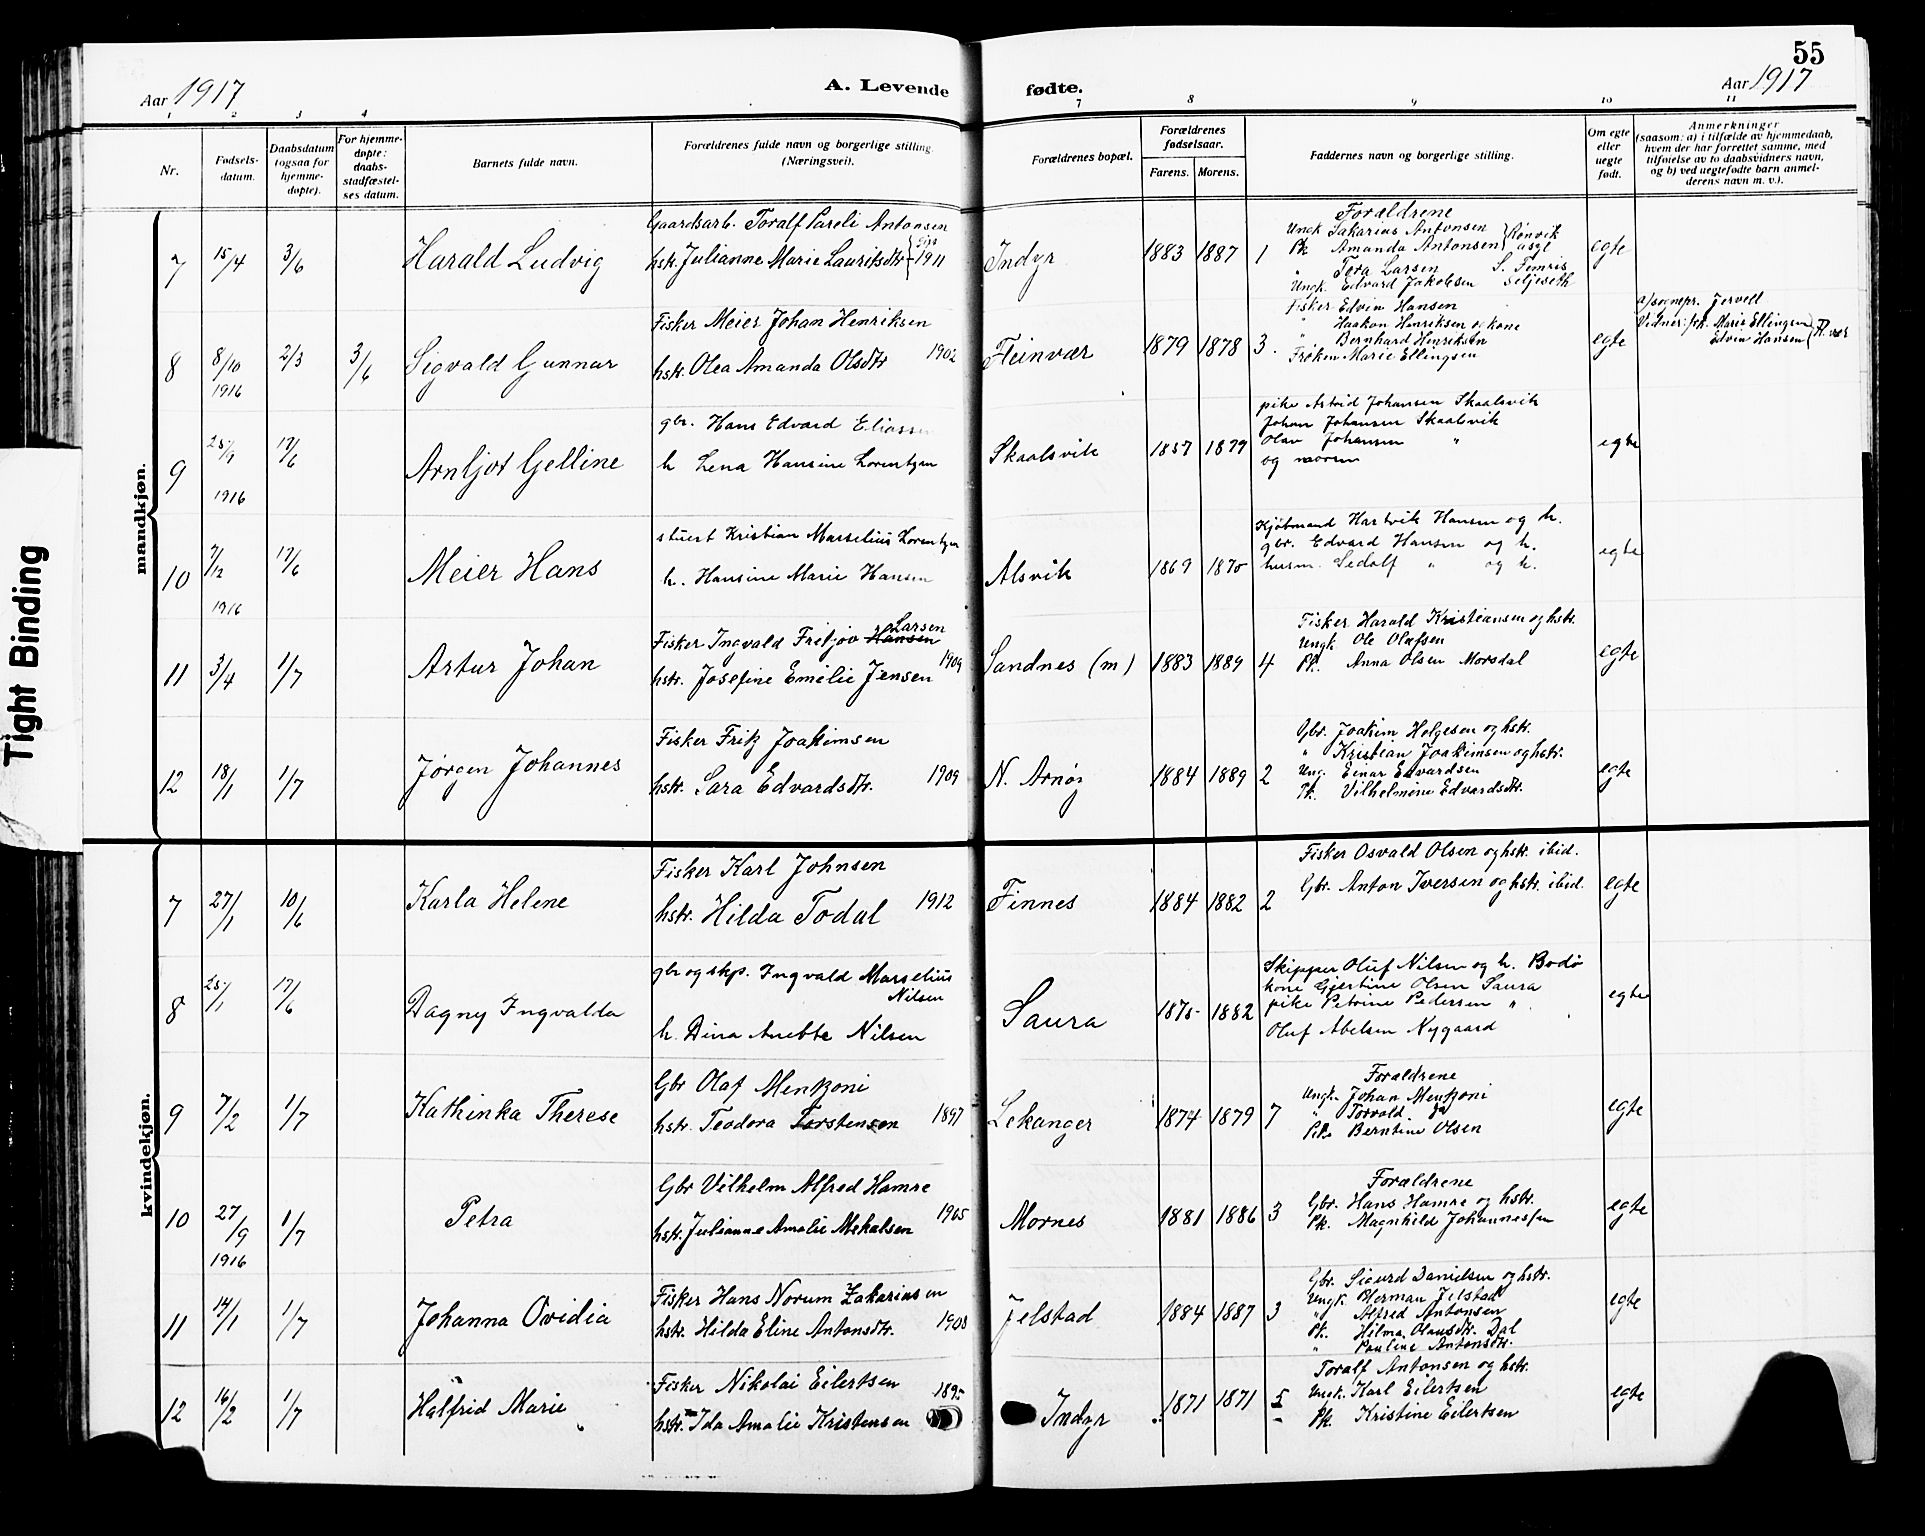 55
Aar 1917
A. Levende
fødte.
Aar 1917
1 2 3 4 7 8 9 10 11
Nr.
Fødsels-
datum.
Daabsdatum
(ogsaa for
hjemme-
døpte).
For hjemme-
døpte:
daabs-
stadfæstel-
ses datum.
Barnets fulde navn.
Forældrenes fulde navn og borgerlige stilling
(Næringsvei).
Forældrenes bopæl.
Forældrenes
fødselsaar.
Farens. Morens.
Faddernes navn og borgerlige stilling.
Om egte
eller
uegte
født.
Anmerkninger
(saasom: a) i tilfælde av hjemmedaab,
hvem der har forrettet samme, med
tilføielse av to daabsvidners navn,
og b) ved uegtefødte barn anmel-
derens navn m. v.).
mandkjøn.
7 15/4 3/6 Harald Ludvig
Gaardsarb. Toralf Pareli Antonsen
hstr. Julianne Marie Lauritsdtr 1911
Indyr 1883 1887 1
Forældrene
Ungk Sakarius Antonsen
Pk Amanda Antonsen Rønvik asyl
" Tora Larsen S.
Ungk. Edvard Jakobsen Seljeseth
egte
8 8/10 1916 2/3 3/6 Sigvald Gunnar
Fisker Meier Johan Henriksen
hstr. Olea Amanda Olsdtr 1902
Fleinvær 1879 1878 3.
Fisker Edvin Hansen
" Haakon Henriksen og kone
" Bernhard Henriksen
Frøken Marie Ellingsen
egte
a/ sognepr. Jervell
Vidner: frk. Marie Ellingsen
Edvin Hansen Fl.vær
9 25/9 1916 17/6 Arnljot Gelline
gbr. Hans Edvard Eliassen
h Lena Hansine Lorentzen
Skaalsvik 1857 1879
pike Astrid Johansen Skaalsvik
Johan Johansen Skaalsvik
Olav Johansen "
og moren
egte
10 7/12 1916 17/6 Meier Hans
stuert Kristian Marselius Lorentzen
h. Hansine Marie Hansen
Alsvik 1869 1870
Kjøbmand Hartvik Hansen og h.
gbr. Edvard Hansen og h.
husm. Sedolf " og h.
egte
11 3/4 1/7 Artur Johan
Larsen
Fisker Ingvald Fritjov Hansen
hstr. Josefine Emelie Jensen 1909
Sandnes (m) 1883 1889 4
Fisker Harald Kristiansen og hstr.
Ungk. Ole Olafsen
Pk. Anna Olsen Morsdal
egte
12 18/1 1/7 Jørgen Johannes
Fisker Fritz Joakimsen
hstr. Sara Edvardsdtr. 1909
N. Arnøy 1884 1889 2
Gbr. Joakim Helgesen og hstr.
" Kristian Joakimsen og hstr.
Ung. Einar Edvardsen
Pk. Vilhelmine Edvardsdtr.
egte
kvindekjøn.
7 27/1 10/6 Karla Helene
Fisker Karl Johnsen
hstr. Hilda Todal 1912
Finnes 1884 1882 2
Fisker Osvald Olsen og hstr. ibid.
Gbr. Anton Iversen og hstr. ibid.
egte
8 25/1 17/6 Dagny Ingvalda
gbr og skp. Ingvald Marselius
Nilsen
h. Dina Anette Nilsen
Saura 1875 1882
Skipper Oluf Nilsen og h. Bodø
kone Gjertine Olsen Saura
pike Petrine Pedersen "
Oluf Abelsen Nygaard
egte
9 7/2 1/7 Kathinka Therese
Gbr Olaf Mentzoni
hstr. Teodora Torstensen 1897
Lekanger 1874 1879 7
Forældrene
Ungk. Johan Mentzoni
" Torvald do
Pike Berntine Olsen
egte
10 27/9 1916 1/7 Petra
Gbr Vilhelm Alfred Hamre
hstr. Julianne Amalie Mekalsen 1905
Mornes 1881 1886 3
Forældrene
Gbr. Hans Hamre og hstr.
Pk. Magnhild Johannessen
egte
11 14/1 1/7 Johanna Ovidia
Fisker Hans Norum Zakariassen
hstr. Hilda Eline Antonsdtr. 1908
Jelstad 1884 1887 3
Gbr. Sigurd Danielsen og hstr.
Ungk. Herman Jelstad
" Alfred Antonsen
Pk. Hilma Olausdtr. Dal
" Pauline Antonsdtr.
egte
12 16/2 1/7 Halfrid Marie
Fisker Nikolai Eilertsen
hstr. Ida Amalie Kristensen 1895
Indyr 1871 1871 5
Toralf Antonsen og hstr.
Ungk. Karl Eilertsen
Pk Kristine Eilertsen
egte
Tight Binding